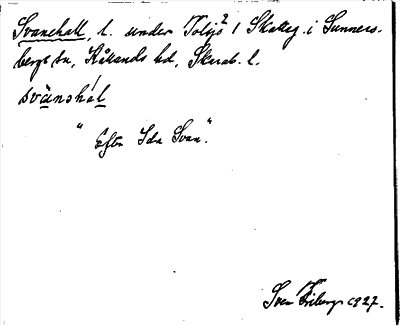 Svanehall, l. under Tolsjö 1 Skatteg. i Sunners-
bergs sn, Kållands hd, Skarab. l.
svä́nshàl
"Efter Ida Svan."
Sven Friberg 1927.